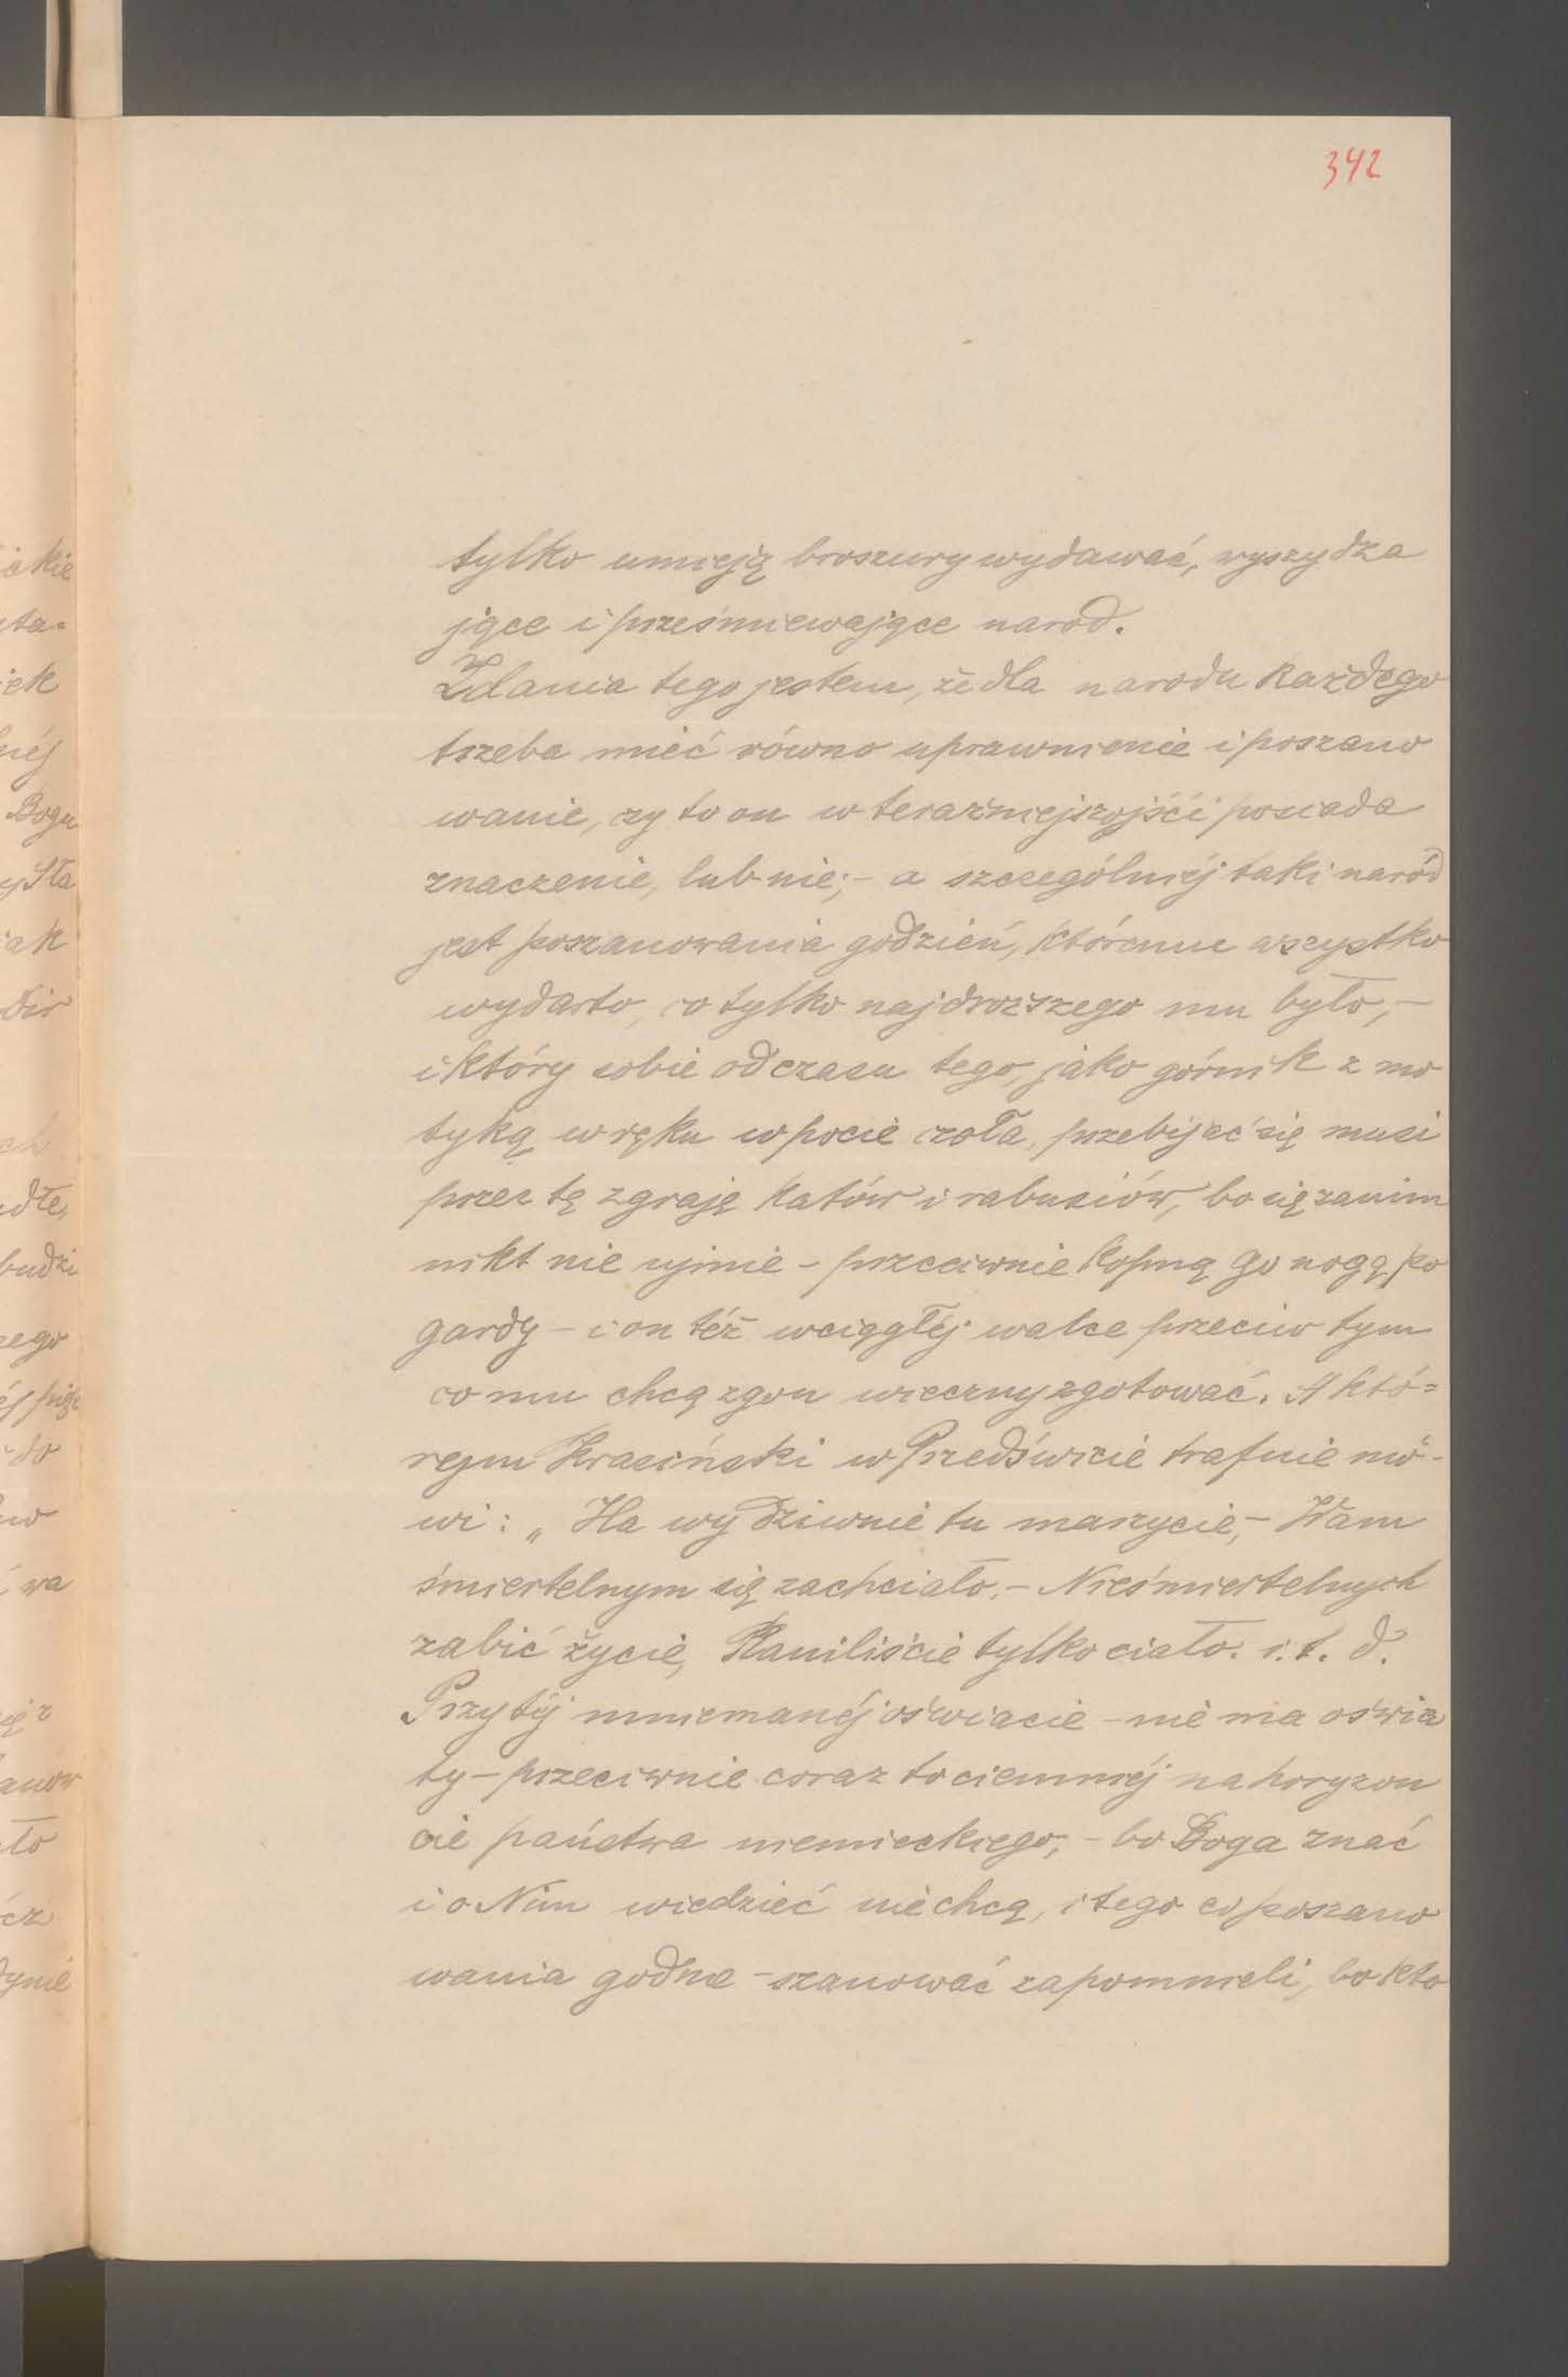 342
tylko umieją broszury wydawać, wyszydza
jące i prześmiewające narod.
Zdania tego jestem, że dla narodu każdego
trzeba mieć równo uprawnienie i poszano
wanie, czy to on w teraźniejszojści posiada
znaczenie, lub nie; - a szczególniéj taki naród
jest poszanowania godzień, któremu wszystko
wydarto, co tylko najdroższego mu było, -
i który sobie od czasu tego, jako górnik z mo
tyką w ręku w pocie czoła, przebijać się musi
przez tę zgraję katów i rabusiów, bo się zanim
nikt nie ujmie - przeciwnie kopną go nogą po
gardy - i on téż wciągłéj walce przeciw tym
co mu chcą zgon wieczny zgotować. A któ=
rym Krasiński w Przedświcie trafnie mó-
wi: „Ha wy dziwnie tu marzycie, - Wam
śmiertelnym się zachciało, - Nieśmiertelnych
zabić życie, Raniliście tylko ciało. i. t. d.
Przy téj mniemanéj oświacie - nie ma oświa
ty - przeciwnie coraz to ciemniéj na horyzon
cie państwa niemieckiego, - bo Boga znać
i o Nim wiedzieć nie chcą, i tego co poszano
wania godne - szanować zapomnieli, bo kto
ickie
ta=
iek
néj
Bogu
Sta
ak
Dir
ch
dłe,
budzi
zego
to
wa
anow
to
cz
dynie